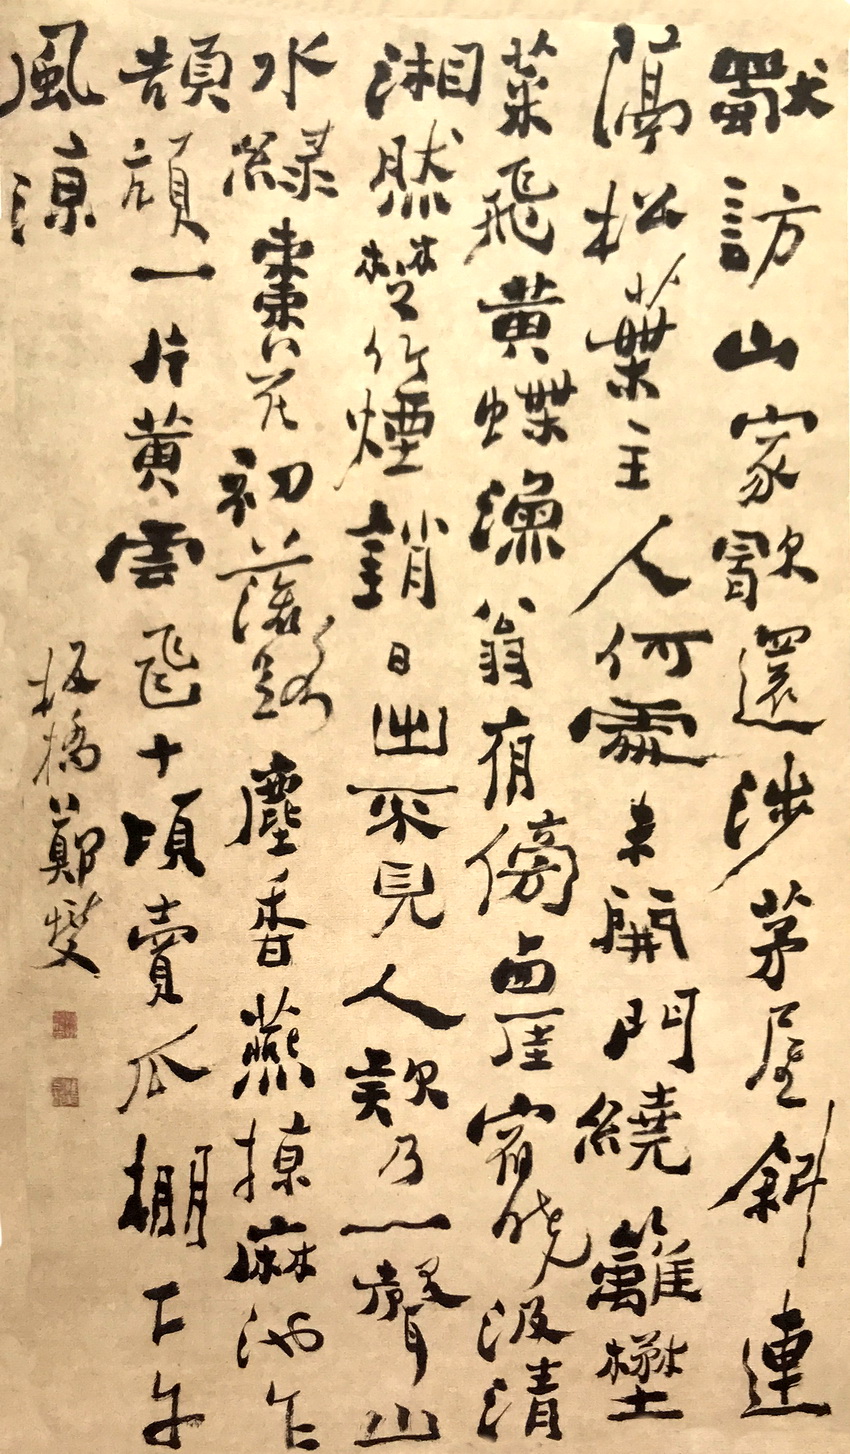 獨訪山家歇還涉茅屋斜連
隔松葉主人何處未開門繞籬壄
菜飛黃蝶漁翁夜傍西厓宿曉汲清
湘然楚竹煙銷日出不見人欸乃一聲山
水綠棗花初落路塵香燕掠麻池乍
頡頏一片黃雲飛十頃賣瓜棚下午
風涼
板橋鄭燮